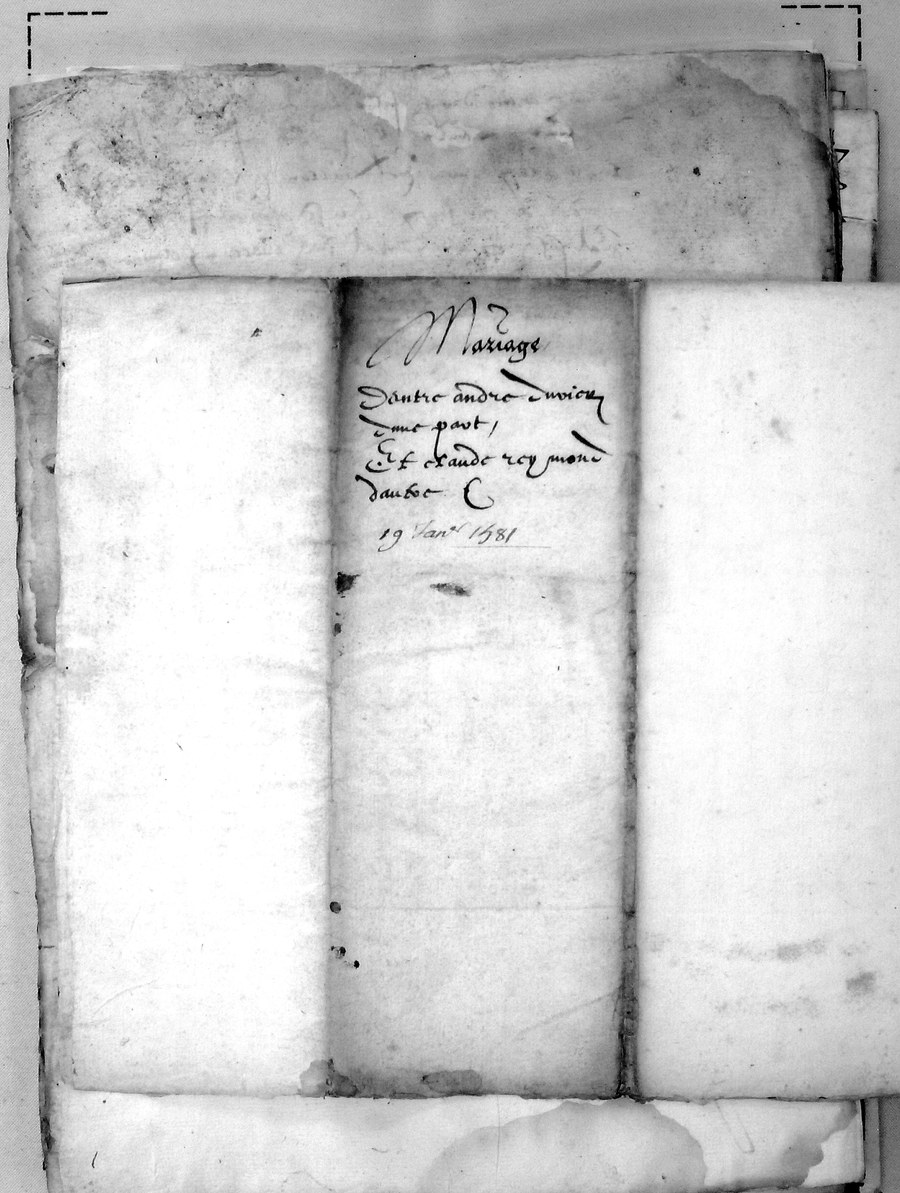 Mariage
Dentre andre Duvier
dune part,
Et claude reymond
dautre
19 Janer 1581